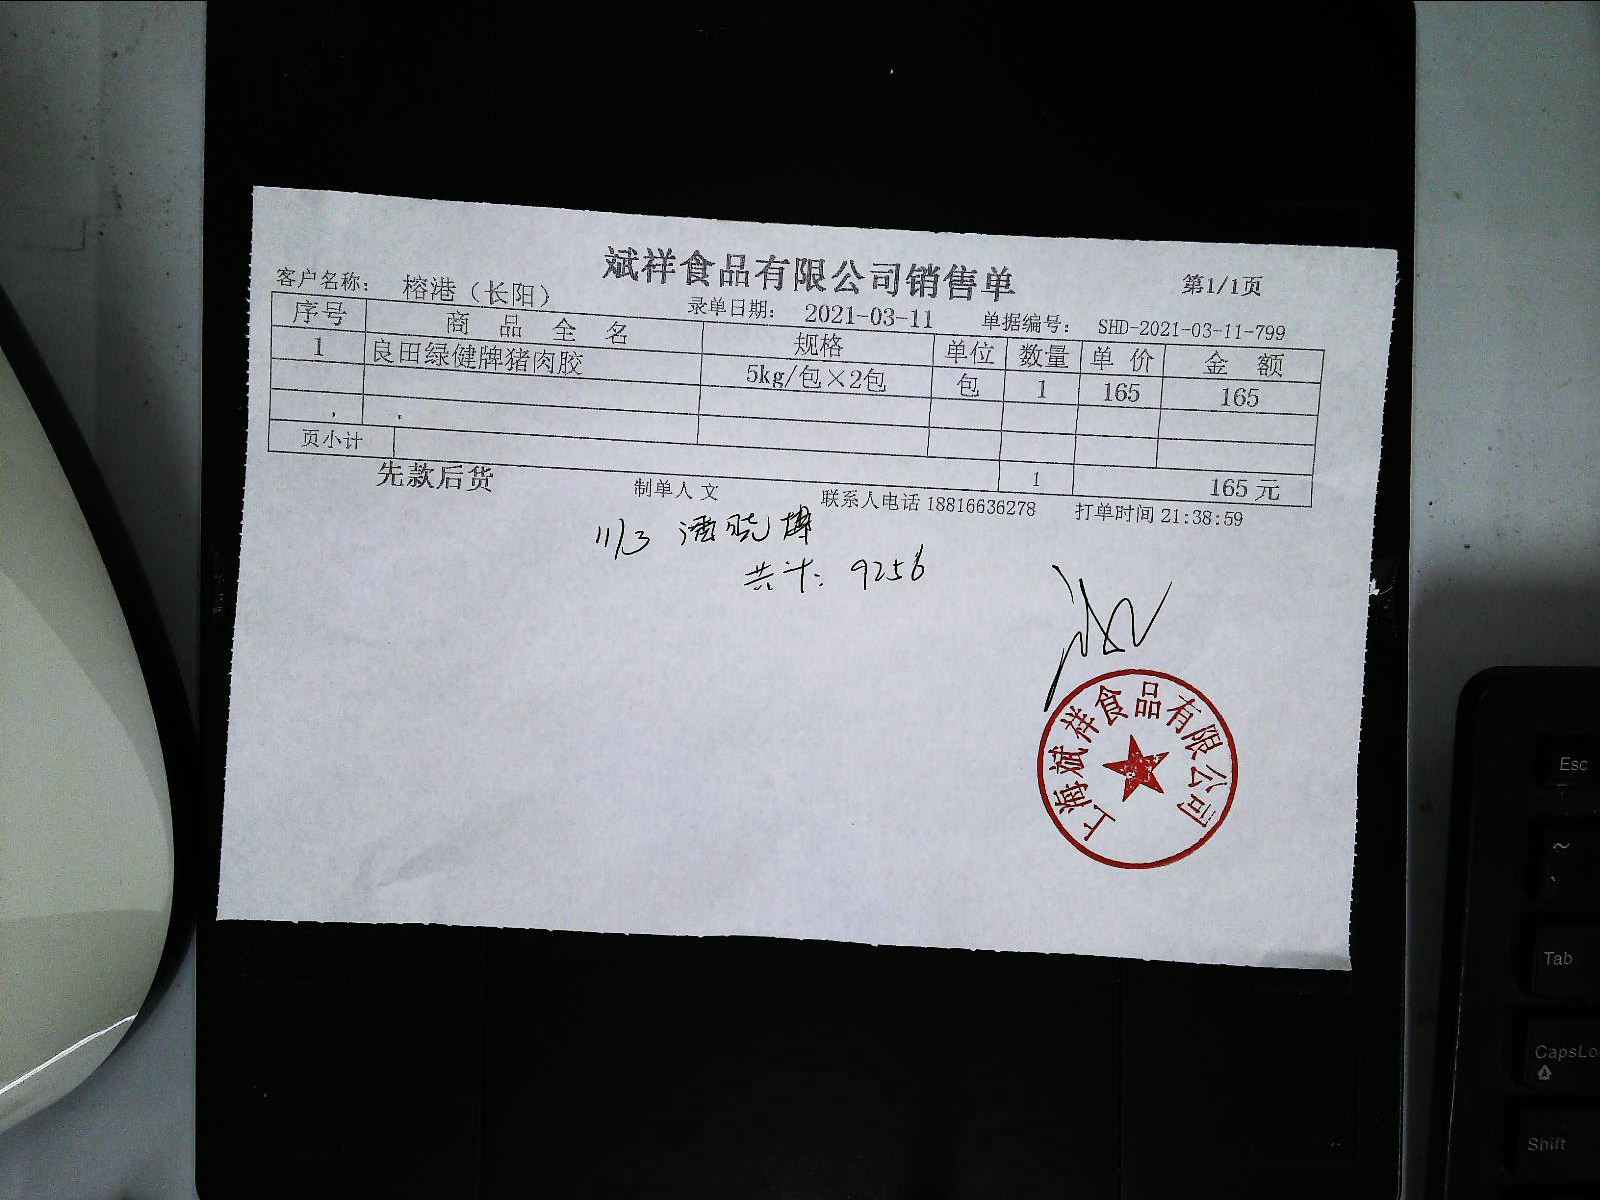 斌祥食品有限公司销售单
第1/1页
客户名称： 榕港（长阳） 录单日期： 2021-03-11 单据编号： SHD-2021-03-11-799
序号 商品全名 规格 单位 数量 单价 金额
1 良田绿健牌猪肉胶 5kg/包×2包 包 1 165 165
页小计 1 165元
先款后货 制单人 文 联系人电话 18816636278 打单时间 21:38:59
11/3 潘晓博
共计：9256
上海斌祥食品有限公司
Esc
~
`
Tab
CapsLo
Shift